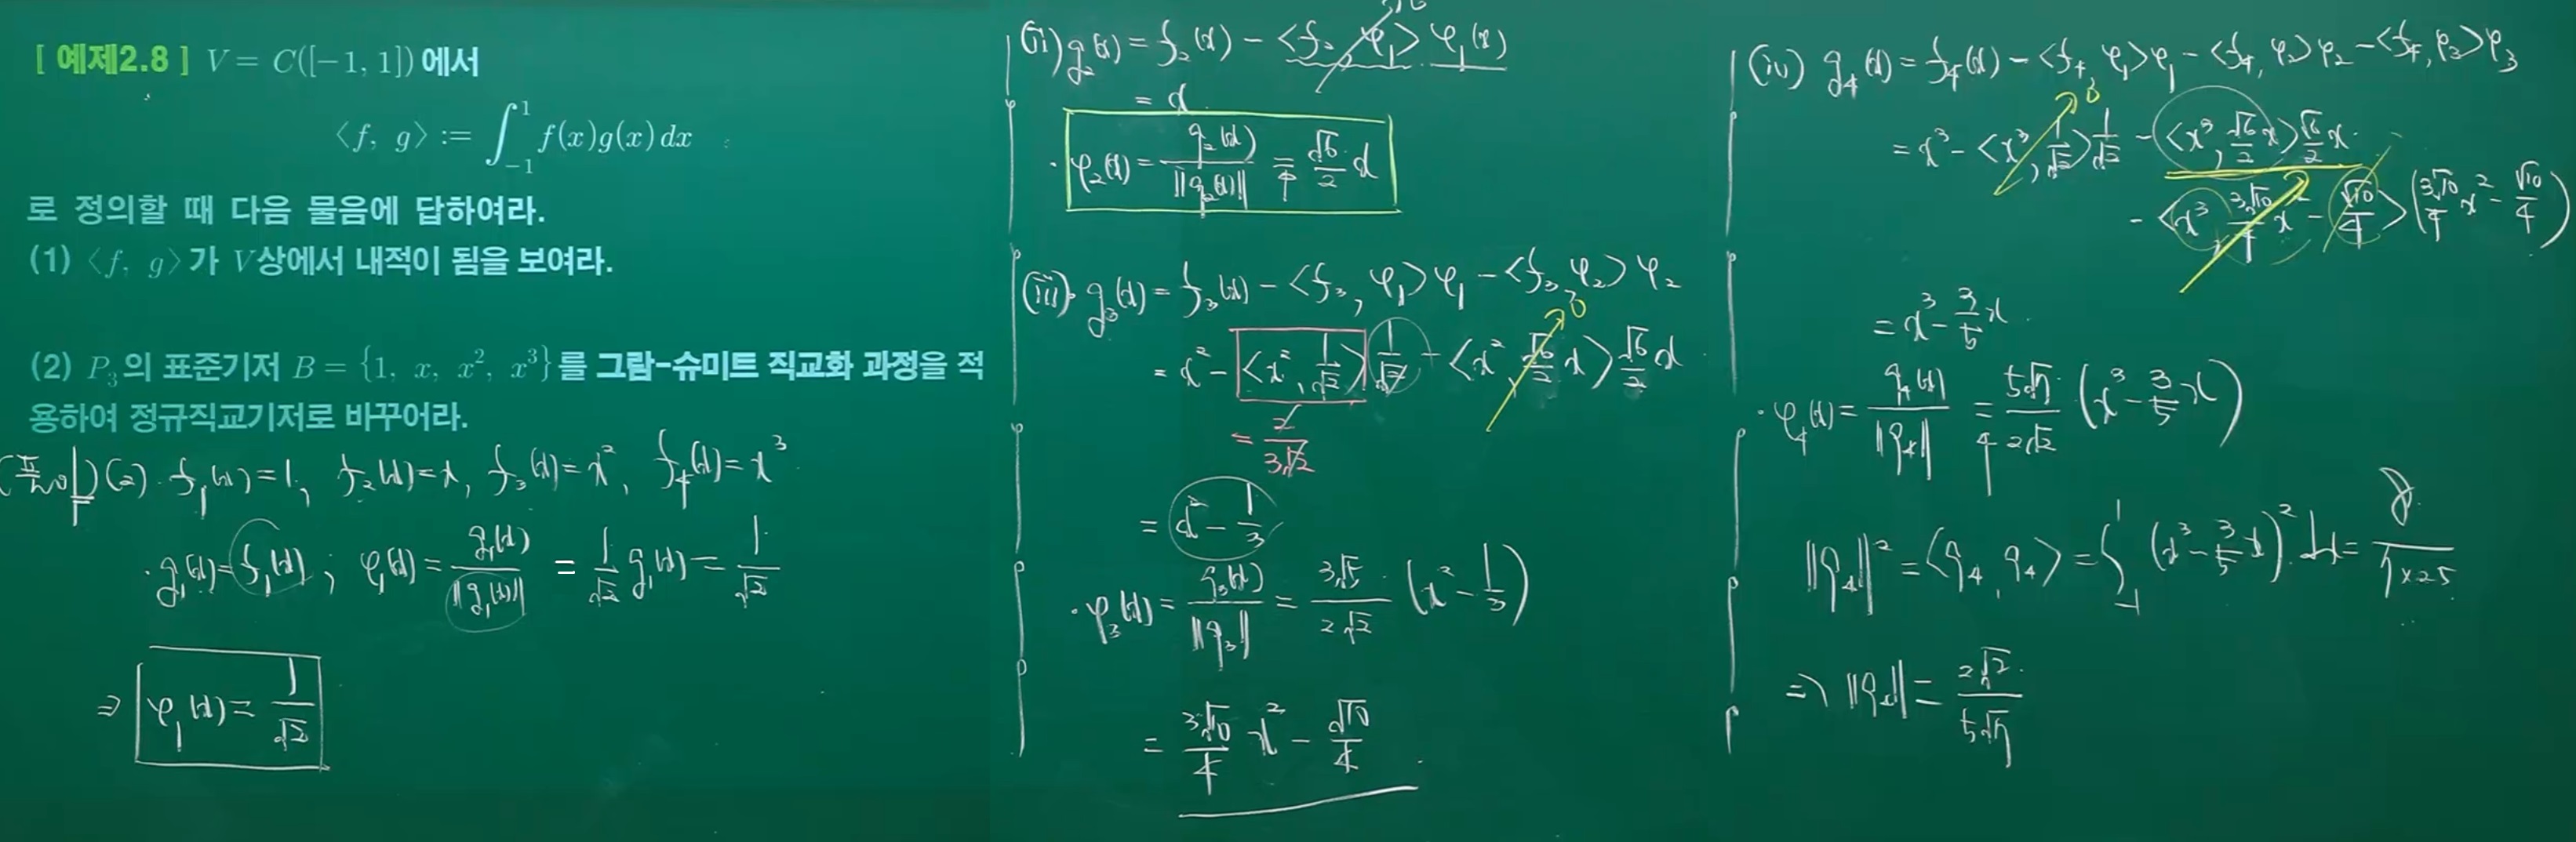 [ 예제2.8 ] V = C([−1, 1]) 에서
⟨f, g⟩ := ∫_{-1}^{1} f(x)g(x) dx
로 정의할 때 다음 물음에 답하여라.
(1) ⟨f, g⟩가 V상에서 내적이 됨을 보여라.
(2) P₃의 표준기저 B = {1, x, x², x³}를 그람-슈미트 직교화 과정을 적
용하여 정규직교기저로 바꾸어라.
(풀이) (2). f₁(x)=1, f₂(x)=x, f₃(x)=x², f₄(x)=x³
· g₁(x)=f₁(x) ; φ₁(x)= g₁(x)/‖g₁(x)‖ = 1/√2 g₁(x) = 1/√2
⇒ φ₁(x) = 1/√2
(ii) g₂(x) = f₂(x) − <f₂, φ₁> φ₁(x)
= x
· φ₂(x) = g₂(x)/‖g₂(x)‖ = √6/2 x
(iii) g₃(x) = f₃(x) − <f₃, φ₁>φ₁ − <f₃, φ₂> φ₂
0
= x² − <x², 1/√2> 1/√2 − <x² √6/2 x> √6/2 x
= 2/3√2
= x² − 1/3
· φ₃(x) = g₃(x)/‖g₃‖ = 3√5/2√2 (x² − 1/3)
= 3√10/4 x² − √10/4
(iv) g₄(x) = f₄(x) − <f₄, φ₁>φ₁ − <f₄, φ₂>φ₂ − <f₄, φ₃>φ₃
0
= x³ − <x³, 1/√2> 1/√2 − <x³, √6/2 x> √6/2 x
− <x³, 3√10/4 x² − √10/4> (3√10/4 x² − √10/4)
= x³ − 3/5 x
· φ₄(x) = g₄(x)/‖g₄‖ = 5√7/2√2 (x³ − 3/5 x)
‖g₄‖² = <g₄, g₄> = ∫_{-1}^{1} (x³ − 3/5 x)² dx = 8/7×25
⇒ ‖g₄‖ = 2√2/5√7